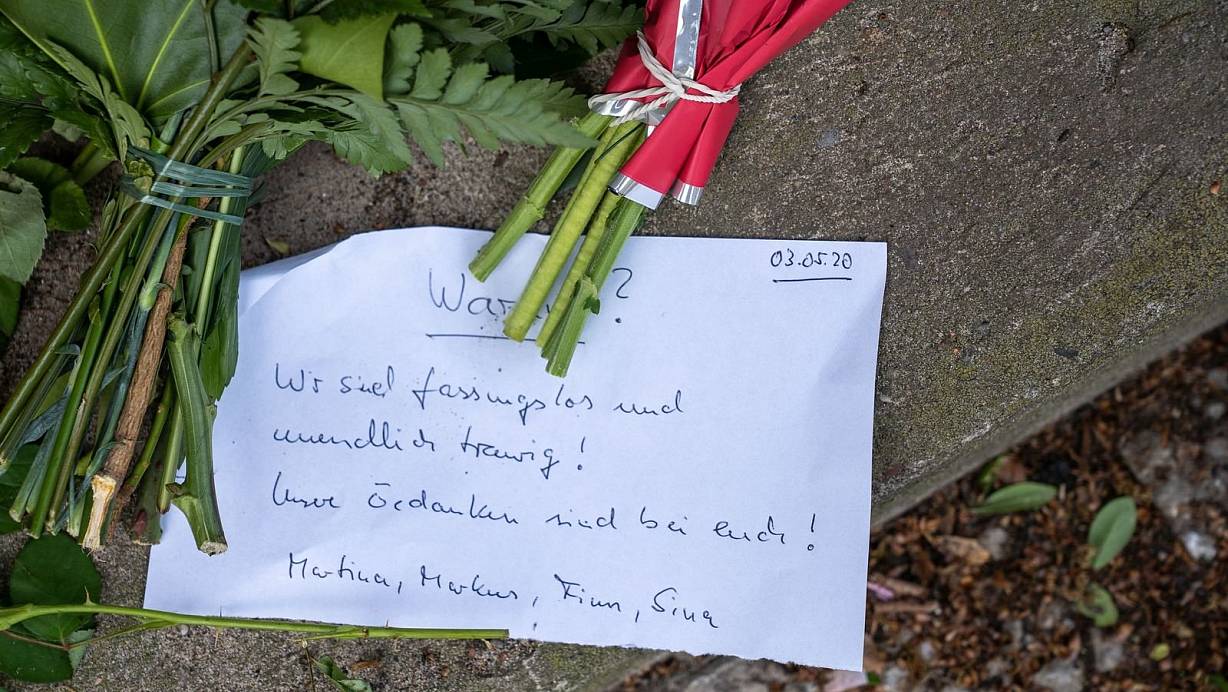 03.05.20
Warum?
Wir sind fassungslos und
unendlich traurig!
Unsere Gedanken sind bei euch!
Martina, Markus, Finn, Sina